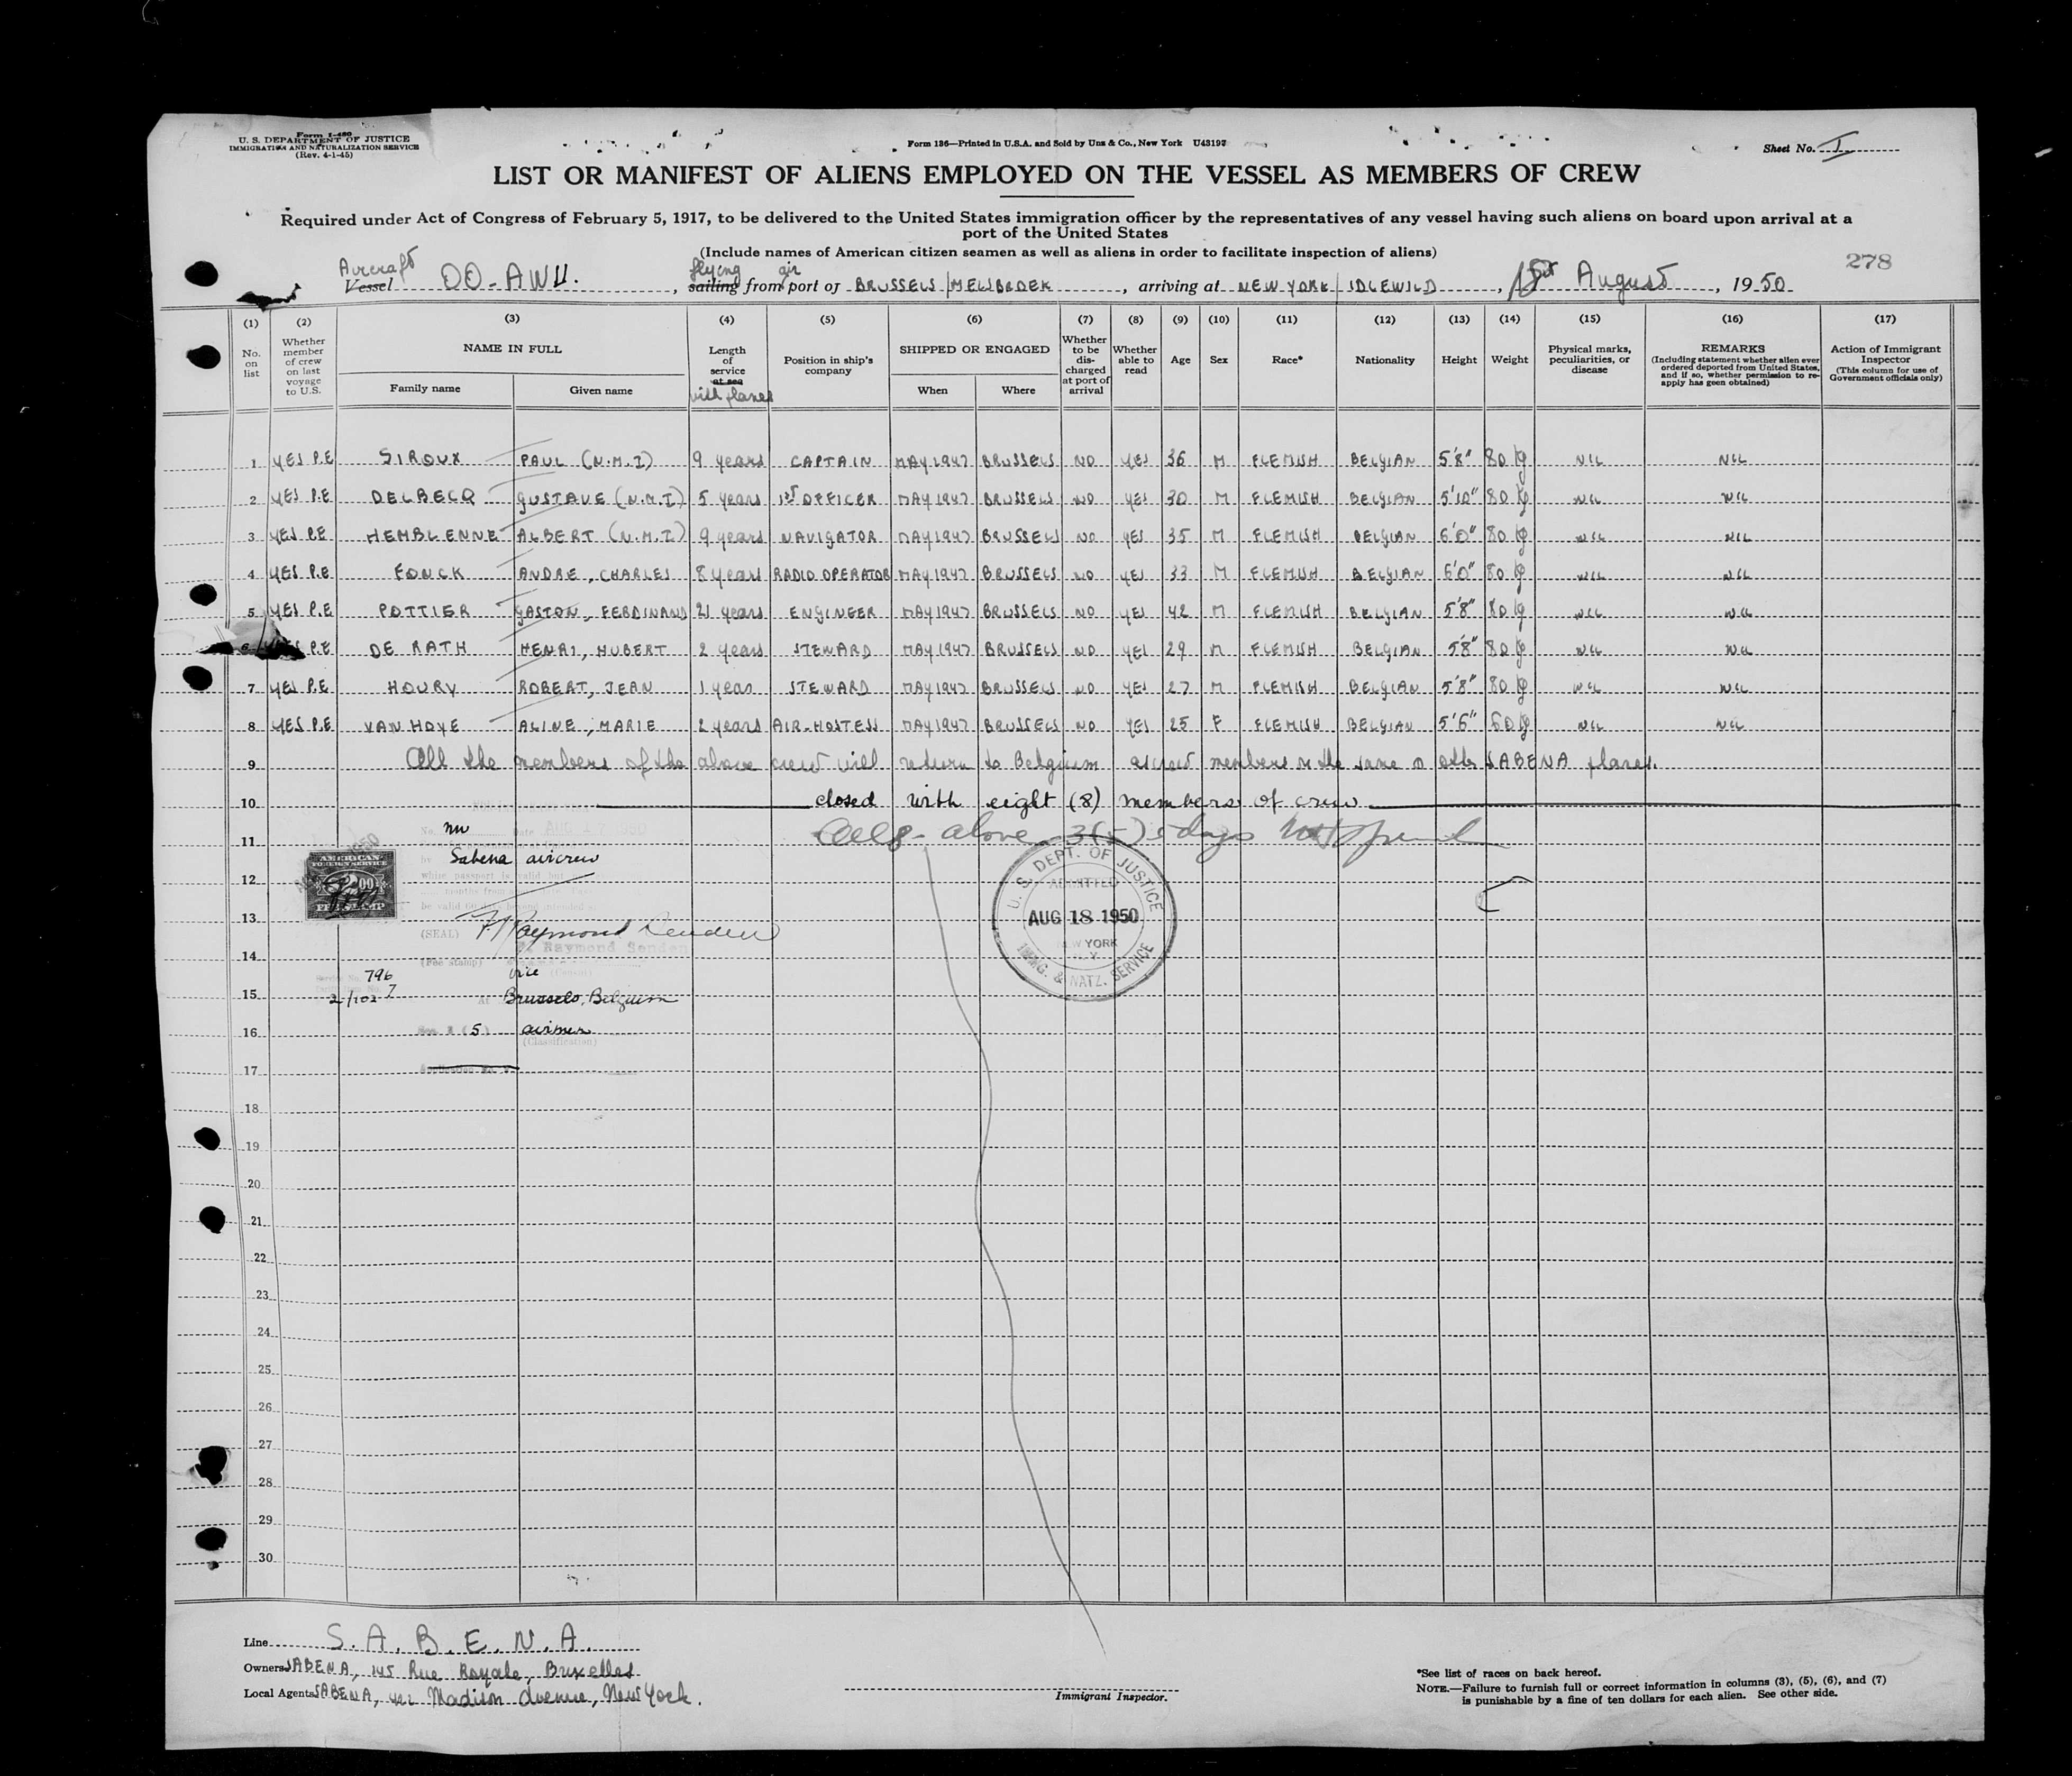 Form I-480
U. S. DEPARTMENT OF JUSTICE
IMMIGRATION AND NATURALIZATION SERVICE
(Rev. 4-1-45)
Form 136—Printed in U.S.A. and Sold by Unz & Co., New York U43197
Sheet No. I
LIST OR MANIFEST OF ALIENS EMPLOYED ON THE VESSEL AS MEMBERS OF CREW
Required under Act of Congress of February 5, 1917, to be delivered to the United States immigration officer by the representatives of any vessel having such aliens on board upon arrival at a
port of the United States
(Include names of American citizen seamen as well as aliens in order to facilitate inspection of aliens)
278
Aircraft flying air
Vessel OO-AWU. , sailing from port of BRUSSELS/MELSBROEK , arriving at NEW YORK/IDLEWILD , August , 1950
(1) (2) (3) (4) (5) (6) (7) (8) (9) (10) (11) (12) (13) (14) (15) (16) (17)
No. on list
Whether member of crew on last voyage to U.S.
NAME IN FULL
Family name Given name
Length of service at sea with planes
Position in ship's company
SHIPPED OR ENGAGED
When Where
Whether to be discharged at port of arrival
Whether able to read
Age
Sex
Race*
Nationality
Height
Weight
Physical marks, peculiarities, or disease
REMARKS
(Including statement whether alien ever ordered deported from United States, and if so, whether permission to re-apply has geen obtained)
Action of Immigrant Inspector
(This column for use of Government officials only)
1 YES P.E SIROUX PAUL (N.M.I) 9 years CAPTAIN MAY 1947 BRUSSELS NO YES 36 M FLEMISH BELGIAN 5'8" 80 kg NIL NIL
2 YES P.E DELBECQ GUSTAVE (N.M.I) 5 years 1st OFFICER MAY 1947 BRUSSELS NO YES 30 M FLEMISH BELGIAN 5'10" 80 kg NIL NIL
3 YES P.E HEMBLENNE ALBERT (N.M.I) 9 years NAVIGATOR MAY 1947 BRUSSELS NO YES 35 M FLEMISH BELGIAN 6'0" 80 kg NIL NIL
4 YES P.E FONCK ANDRE, CHARLES 8 years RADIO OPERATOR MAY 1947 BRUSSELS NO YES 33 M FLEMISH BELGIAN 6'0" 80 kg NIL NIL
5 YES P.E POTTIER GASTON, FERDINAND 21 years ENGINEER MAY 1947 BRUSSELS NO YES 42 M FLEMISH BELGIAN 5'8" 80 kg NIL NIL
6 YES P.E DE RATH HENRI, HUBERT 2 years STEWARD MAY 1947 BRUSSELS NO YES 29 M FLEMISH BELGIAN 5'8" 80 kg NIL NIL
7 YES P.E HOURY ROBERT, JEAN 1 year STEWARD MAY 1947 BRUSSELS NO YES 27 M FLEMISH BELGIAN 5'8" 80 kg NIL NIL
8 YES P.E VAN HOYE ALINE, MARIE 2 years AIR-HOSTESS MAY 1947 BRUSSELS NO YES 25 F FLEMISH BELGIAN 5'6" 60 kg NIL NIL
9 All the members of the above crew will return to Belgium as crew members on the same or other SABENA planes.
10 closed with eight (8) members of crew
No. Date AUG 1950
11 above 3(5) days
Sabena aircrew
AMERICAN
FOREIGN SERVICE
2.00
FEE STAMP
12
13
(SEAL)
Raymond Senden
(Fee stamp)
14
796 Vice (Consul)
15 2/102 7 At Brussels, Belgium
16 (5) airmen
(Classification)
17
U. S. DEPT. OF JUSTICE
ADMITTED
AUG 18 1950
NEW YORK
N. Y.
IMMG. & NATZ. SERVICE
18
19
20
21
22
23
24
25
26
27
28
29
30
Line S.A.B.E.N.A.
Owners SABENA, 145 Rue Royale, Bruxelles
Local Agents SABENA, 422 Madison Avenue, New York.
Immigrant Inspector.
*See list of races on back hereof.
NOTE.—Failure to furnish full or correct information in columns (3), (5), (6), and (7)
is punishable by a fine of ten dollars for each alien. See other side.